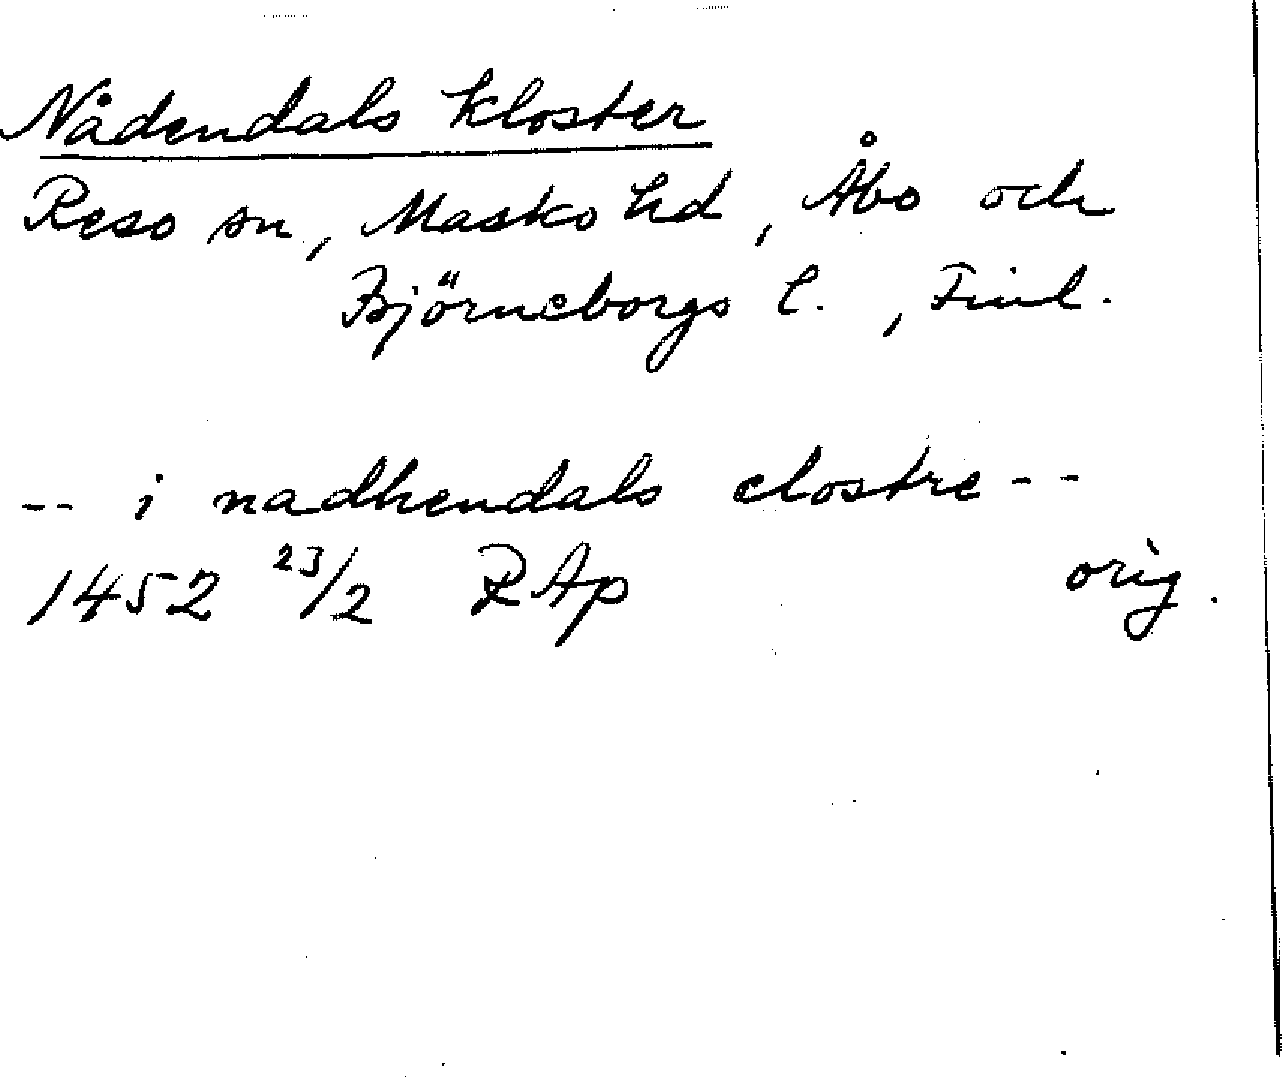 Nådendals kloster
Reso sn, Masko hd, Åbo och
Björneborgs l., Finl.
-- i nadhendals clostre --
1452 23/2 RAp orig.